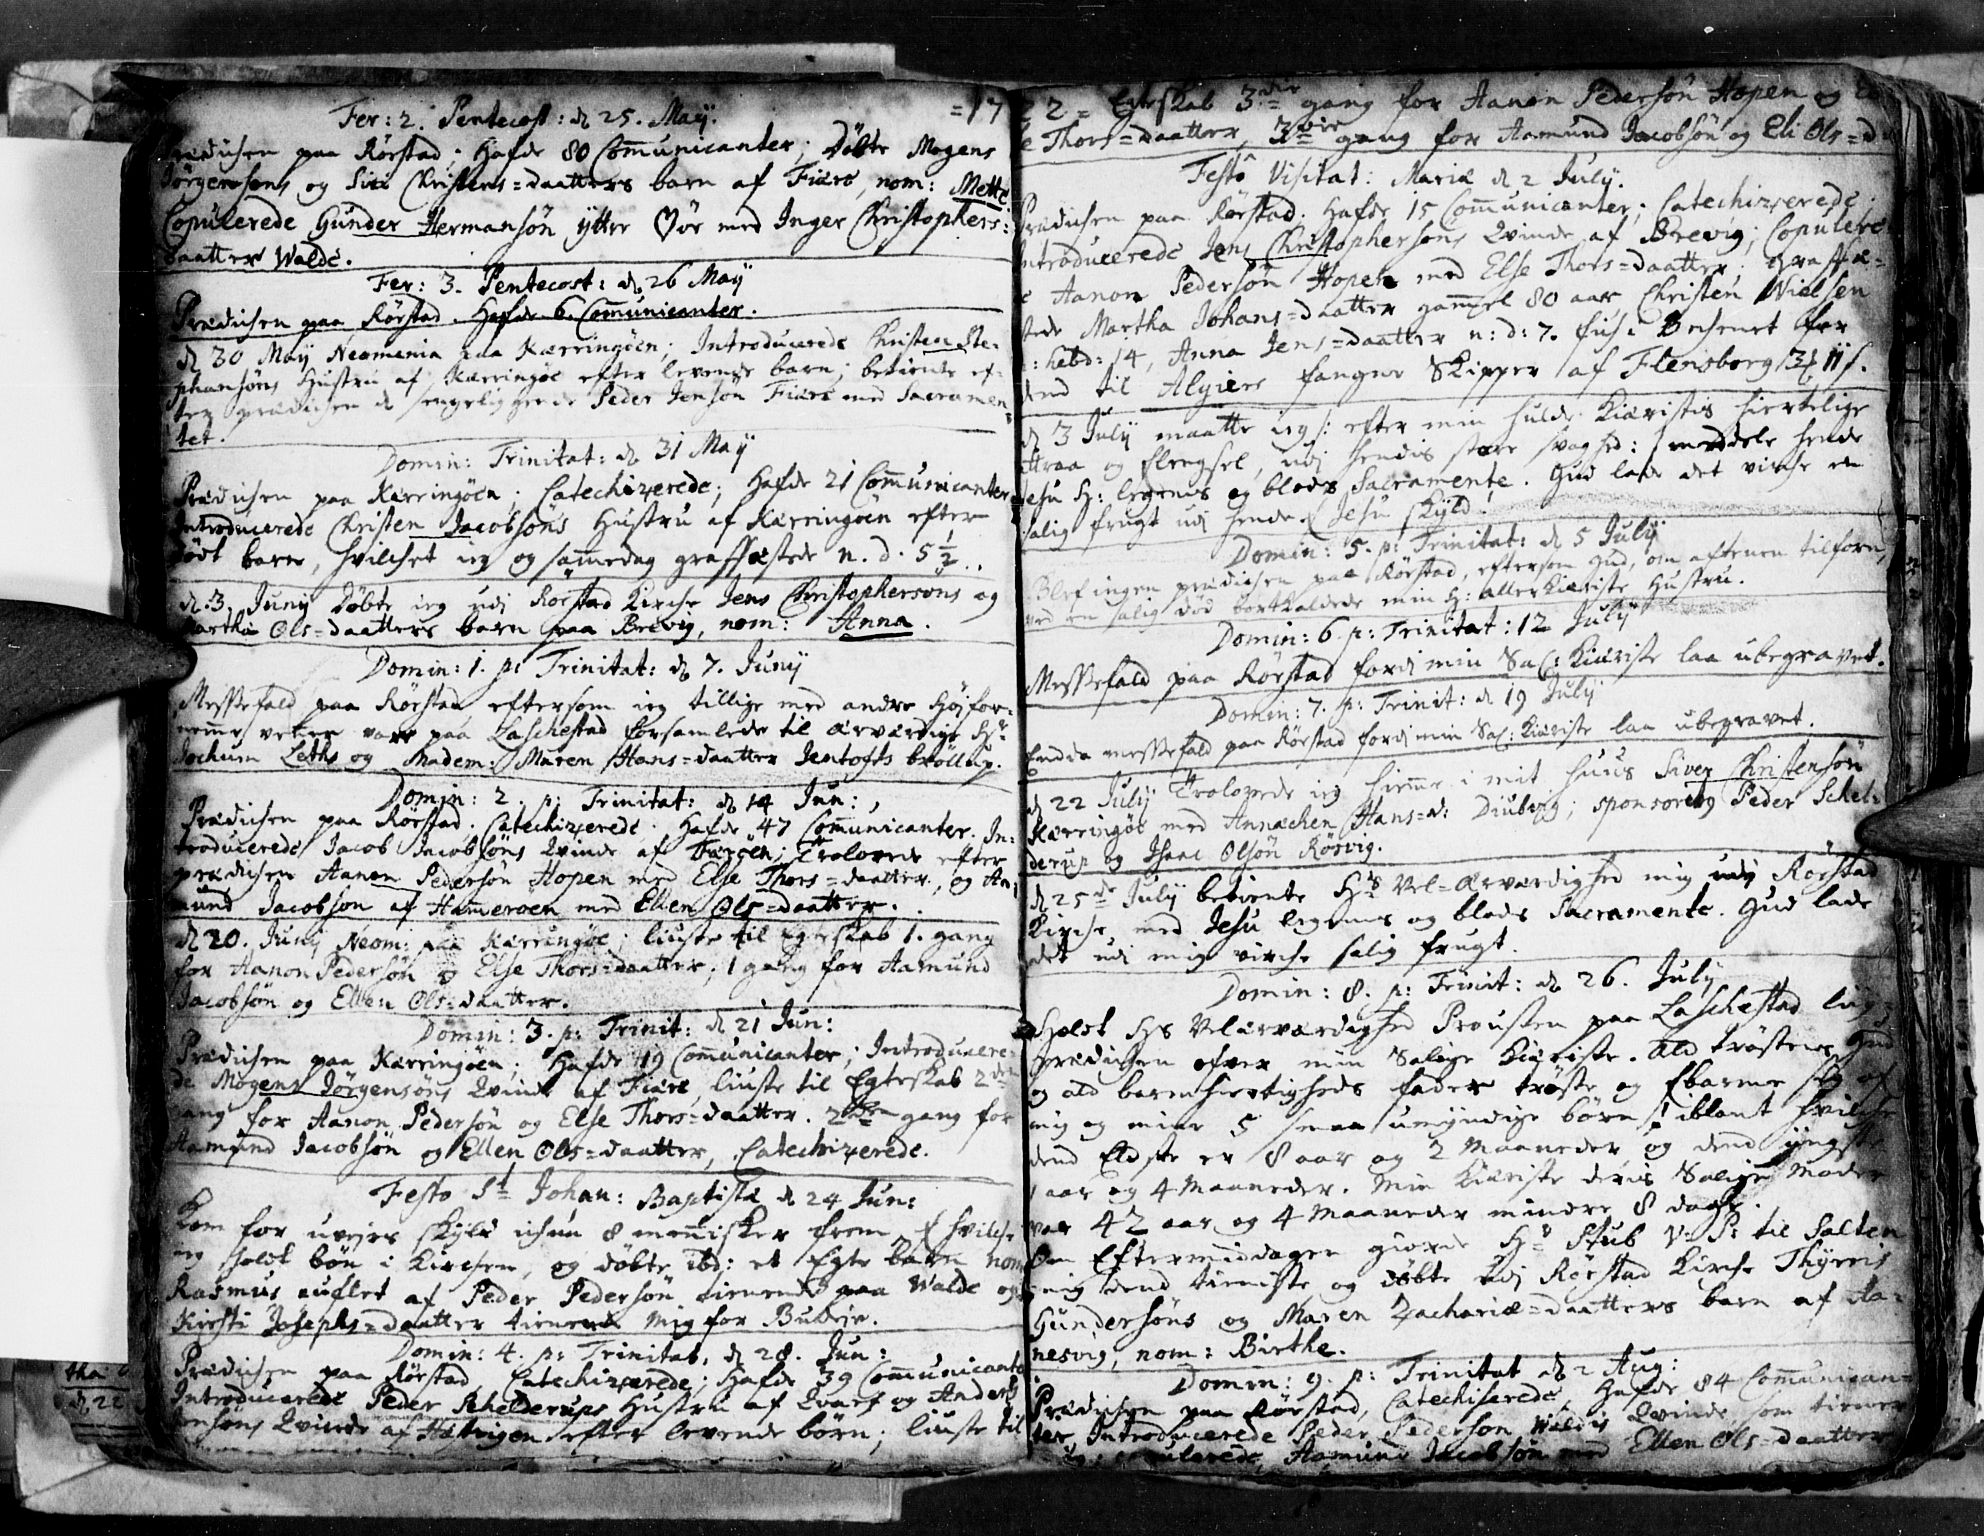 Fer: 2. Pentecost: d 25. Maÿ. =17
Prædichen paa Rörstad; Hafde 80 Communicanter; Döbte Mogens
Jörgensöns og Siri Christens=daatters barn af Fiære, nom: Mette.
Copulerede Gunder Hermansön ÿttre med Inger Christophers:
daatter Walde.
Fer: 3. Pentecost: d, 26 Maÿ
Prædichen paa Rörstad. Hafde 6 Communicanter.
d 30 Maÿ Neomenia paa Kærringöen; Introducerede Christen Ste-
phansöns Hustru af Kærringöe efter levende barn; betiente ef-
ter prædichen d sengeliggende Peder Jensön Fiære med Sacramen-
tet.
Domin: Trinitat: d 31 Maÿ
Prædichen paa Kærringöen; Catechizerede; Hafde 21 Communicanter
Introducerede Christen Jacobsöns Hustru af Kærringöen efter
dödt barn, hvilchet ieg og sammedag graffæstede n. d. 5 1/2.
d. 3. Junÿ Döbte ieg udj Rörstad Kirche Jens Christophersöns og
Martha Ols=daatters barn paa Brevig, nom: Anna.
Domin: 1. p: Trinitat: d 7. Junÿ
Messefald paa Rörstad eftersom ieg tillige med andre Höjfor-
nemme venner vare paa Laschestad forsamlede til ærværdige Hr
Jochum Leths og Madem: Maren Hans=daatter Jentofts bröllup.
Domin: 2. p: Trinitat: d 14 Jun:
Prædichen paa Rörstad; Catechizerede. Hafde 47 Communicanter. In-
troducerede Jacob Jacobsöns Qvinde af; Trolovede efter
prædichen Aanon Pedersön Hopen med Else Thors=daatter, og Aa-
mund Jacobsön af Hameroen med Ellen Ols=daatter.
d 20. Junÿ Neom: paa Kærringöe; liuste til Egteskab 1. gang
for Aanon Pedersön og Else Thors=daatter; 1 gang for Aamund
Jacobsön og Ellen Ols=daatter.
Domin: 3. p: Trinit: d 21 Jun:
Prædichen paa Kærringöen; Hafde 19 Communicanter; Introducere-
de Mogens Jörgensöns Qvinde af Fiære, liuste til Egteskab 2den
gang for Aanon Pedersön og Else Thors=daatter. 2den gang for
Aamund Jacobsön og Ellen Ols=daatter, Catechizerede.
Festo St Johan: Baptistæ d 24 Jun:
Kom for uveirs skÿld ichun 8 menisker frem, hvilche
ieg holdt bön i Kirchen, og döbte ibd: et Egte barn nom
Rasmus auflet af Peder Pedersön tienende paa Walde og
Kirsti Josephs=daatter tienende mig for Budeie.
Domin: 4. p: Trinitat, d 28. Jun:
Prædichen paa Rörstad, Catechizerede; Hafde 39 Communicanter
Introducerede Peder Schelderups Hustru af Qvarf og Anders
Jensöns Qvinde af efter levende börn; liuste til
22 = Egteskab 3die gang for Aanon Pedersön Hopen og El-
se Thors=daatter, 3die gang for Aamund Jacobsön og Eli Ols=d
Festo Visitat: Mariæ d 2 Julÿ.
Prædichen paa Rörstad. Hafde 15 Communicanter; Catechizerede;
Introducerede Jens Christophersöns Qvinde af Brevig; Copulere-
de Aanon Pedersön Hopen med Else Thors=daatter; graffæ-
stede Martha Johans=daatter gammel 80 aar, Christen Nielsen
: hebd: 14, Anna Jens=daatter n: d: 7. Bechenet for
dend til Algier fangne Skipper af Flensborg 3 11 s.
d 3 Julÿ maatte ieg: efter min Hulde Kiæristis Hiertelige
Attraa og lengsel, udj hendis store svaghed: meddele hende
Jesu H: legems og blods Sacramente. Gud lade det virche en
salig frugt udi hende f Jesu skÿld!
Domin: 5. p: Trinitat: d 5 Julÿ
Blef ingen prædichen paa Rörstad, eftersom Gud, om aftenen tilforn,
ved en salig död bortkaldede min H: allerkiæriste Hustru.
Domin: 6. p: Trinitat: 12 Julÿ
Messefald paa Rörstad fordi min Sal: Kiæriste laa ubegravet.
Domin: 7. p: Trinit: d 19 Julÿ
Endda messefald paa Rörstad fordj min Sal: Kiæriste laa ubegravet.
d 22 Julÿ Trolovede ieg hiemme i mit Huus Siver Christensön
Kærringöe med Annechen Hans=d: Diubvig; sponsorerÿ Peder Schel-
derup og Isaac Olsön Rösvig.
d 25de Julÿ betiente Hrs Vel=ærværdighed mig udj Rorstad
Kirche med Jesu legems og blods Sacramente. Gud lade
det udi mig virche salig frugt.
Domin: 8. p: Trinit: d 26. Julÿ
Holdt Hs Velærværdighed Prousten paa Laschestad liig-
prædichen ofver min Salige Kiæriste. Ald tröstens Gud
og ald barmhiertigheds fader tröste og Ebarme sig of
mig og mine 5 smaa umÿndige börn! iblant hvilche
dend Eldste er 8 aar og 2 Maaneder og dend ÿngste
1 aar og 4 Maaneder. Min Kiæriste deris Salige Moder
var 42 aar og 4 Maaneder mindre 8 dage.
Om Eftermiddagen giorde Hr Stub V: P: til Salten
mig dend tieniste og döbte udi Rörstad Kirche Thÿris
Gundersöns og Maren Zachariæ=daatters barn af Aa-
nesvig, nom: Birthe.
Domin: 9. p: Trinitat d 2 Aug:
Prædichen paa Rörstad, Catechiserede, Hafde 84 Communican-
ter, Introducerede Peder Pederson Waldis Qvinde, som tiener
Copulerede Aamund Jacobsön med Ellen Ols=daatter